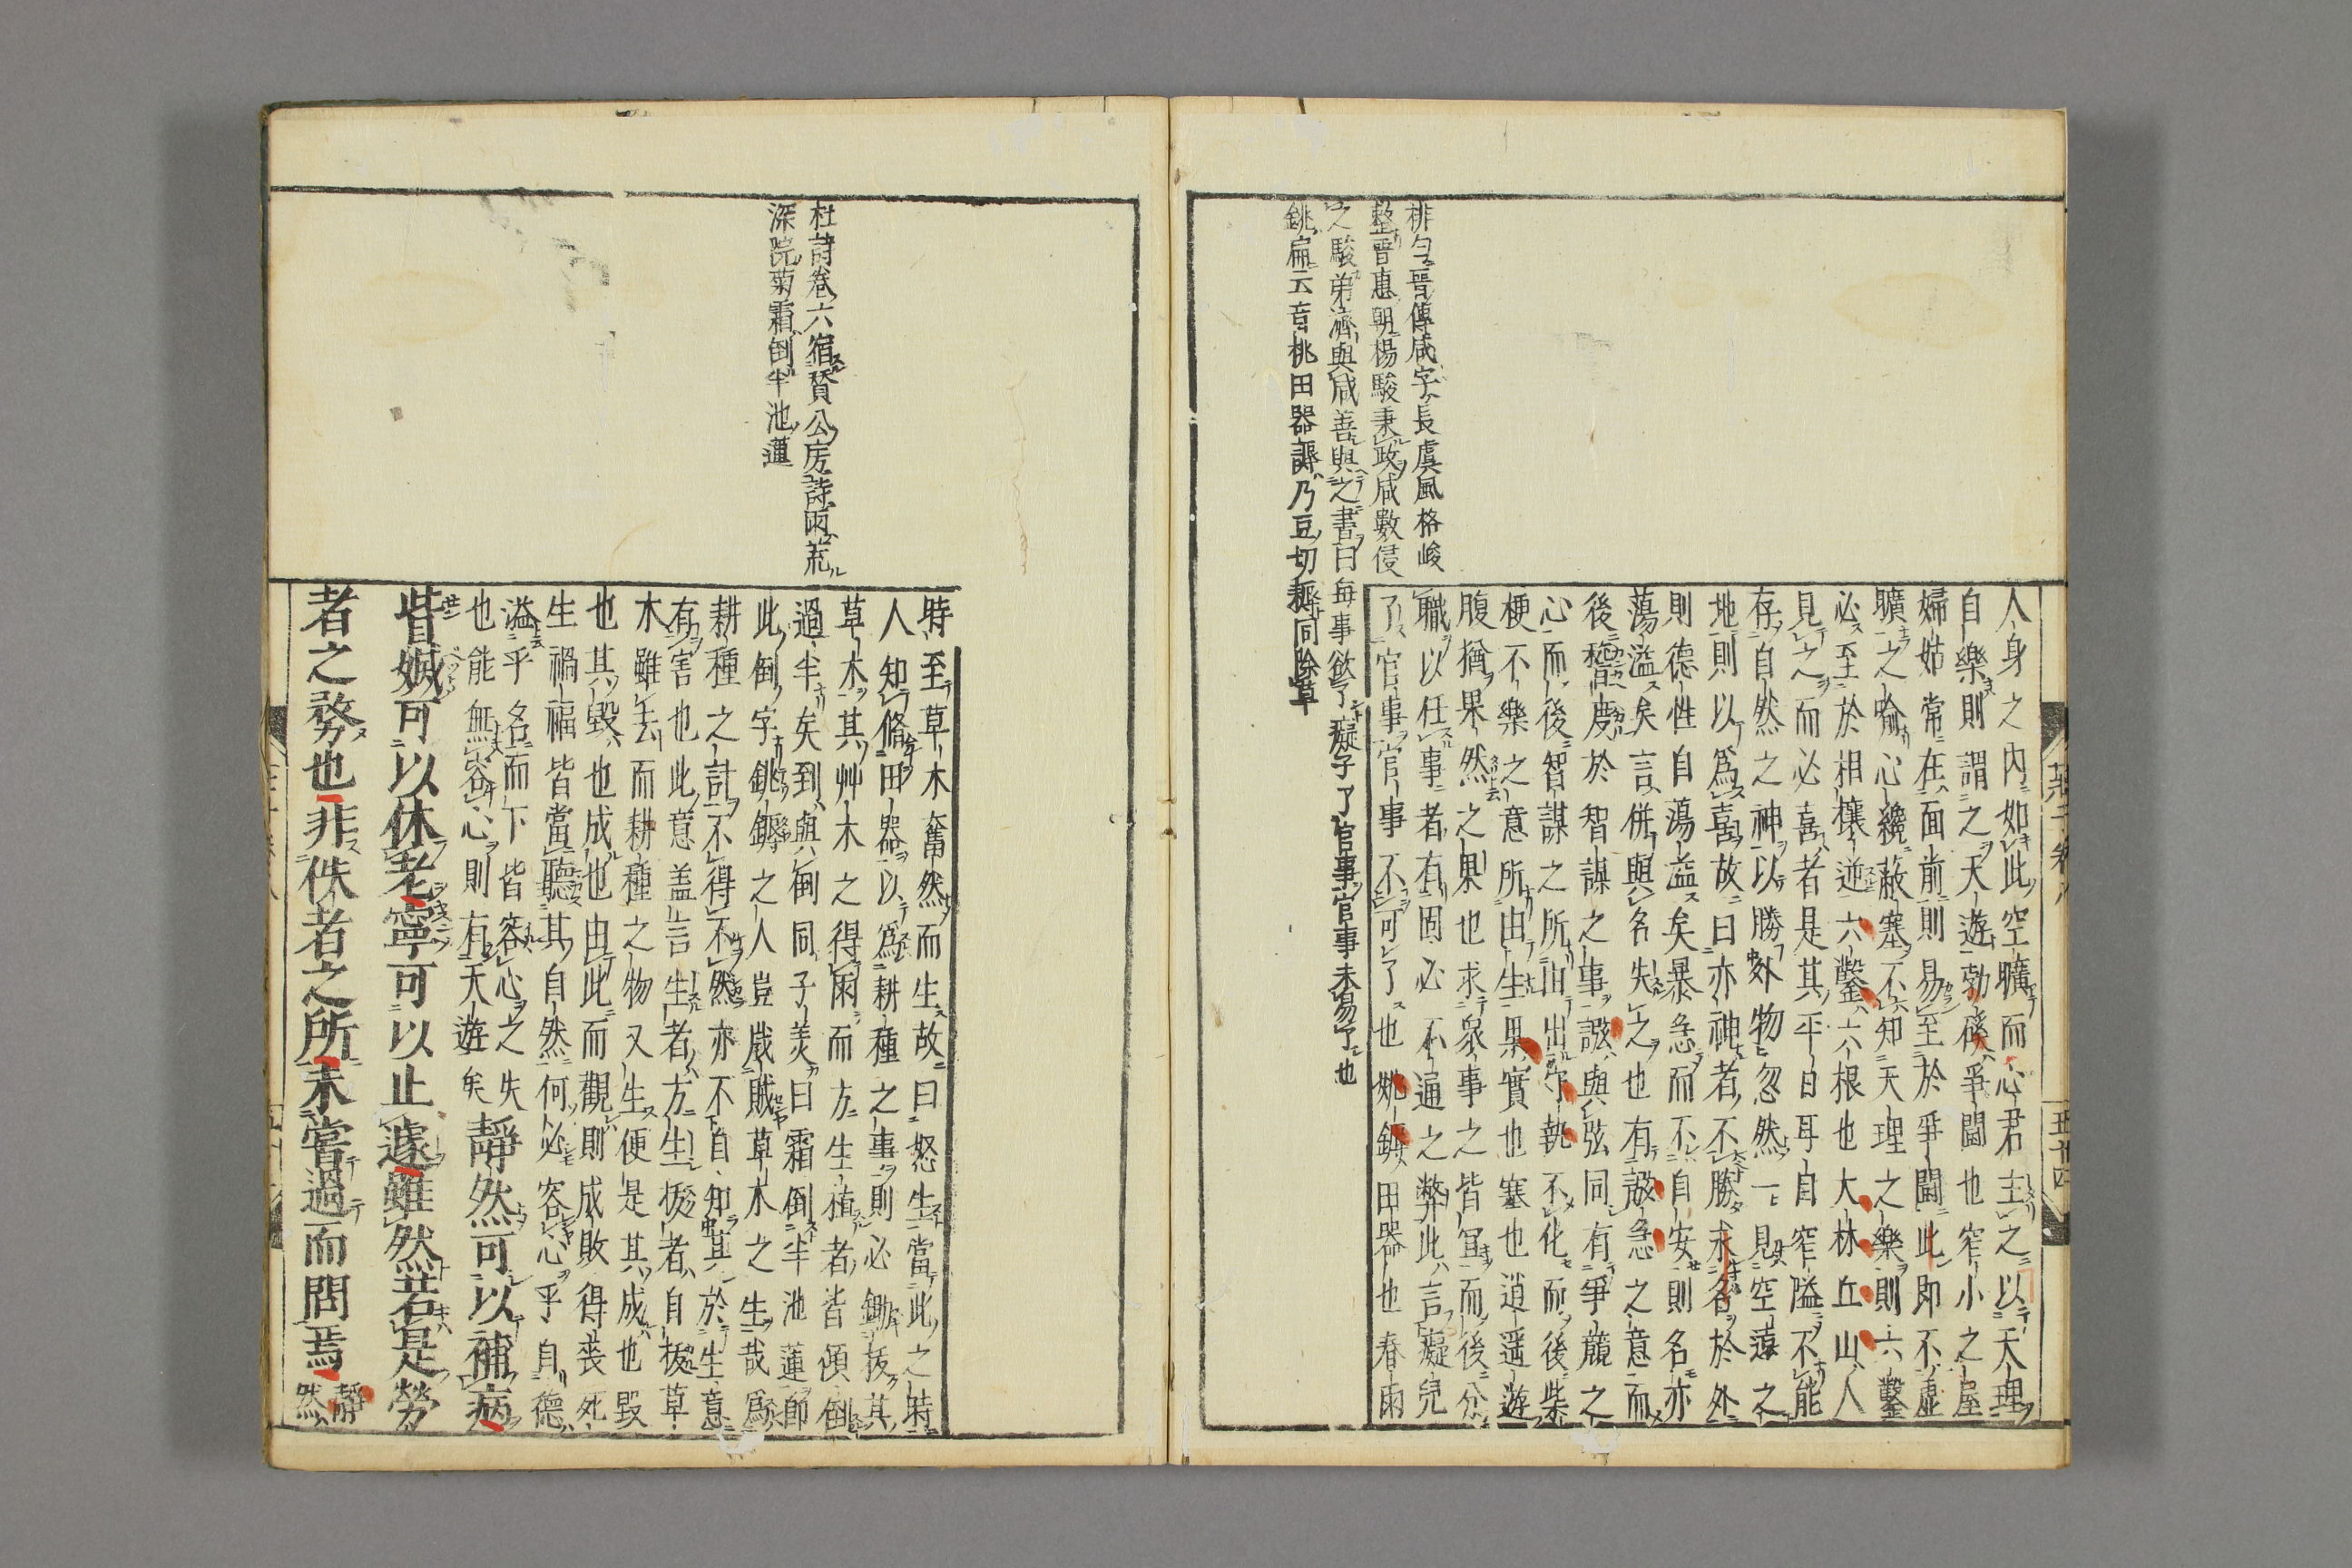 排匀晉傳咸字長虞風格峻
整晋惠朝楊駿秉政咸數侵
之駿弟濟與咸善與之書曰每事欲了癡子了官事官事未易了也
銚扁云音桃田器譳乃豆切耨同除草
人身之內如此空曠而心君主之以天理
自樂則謂之天遊勃豀爭鬪也窄小之屋
婦姑常在面前則易至於爭鬪此即不虛
曠之喻心纔蔽塞不知天理之樂則六鑿
必至於相攘逆六鑿六根也大林丘山人
見之而必喜者是其平日耳目窄隘不能
存自然之神以勝外物忽然一見空遠之
地則以爲喜故曰亦神者不勝永名於外
則德性自蕩溢矣暴急而不自安則名亦
蕩溢矣言併與名失之也有誸急之意而
後稽度於智謀之事誸與弦同有爭競之
心而後智謀之所由出守執不化而後柴
梗不樂之意所由生果實也塞也逍遥遊
腹猶果然之果也求衆事之皆宜而後分
職以任事者有固必不通之弊此言癡兒
了官事官事不可了也銚鎒田器也春雨
杜詩卷六宿賛公房詩雨荒
深院菊霜倒半池蓮
時至草木奮然而生故曰怒生當此之時
人知脩田器以爲耕種之事則必鋤拔其
草木其艸木之得雨而方生植者皆傾倒
過半矣到與倒同子美曰霜倒半池蓮即
此倒字銚鎒之人豈戚賊草木之生哉爲
耕種之計不得不然亦不自知其於生意
有害也此意盖言生者方生拔者自拔草
木雖去而耕種之物又生便是其成也毀
也其毀也成也由此而觀則成敗得喪死
生禍福皆當聽其自然何必容心乎自德
溢乎名而下皆容心之失
也能無容心則有天遊矣靜然可以補病
眥搣可以休老寧可以止遽雖然若是勞
者之務也非佚者之所未嘗過而問焉靜然